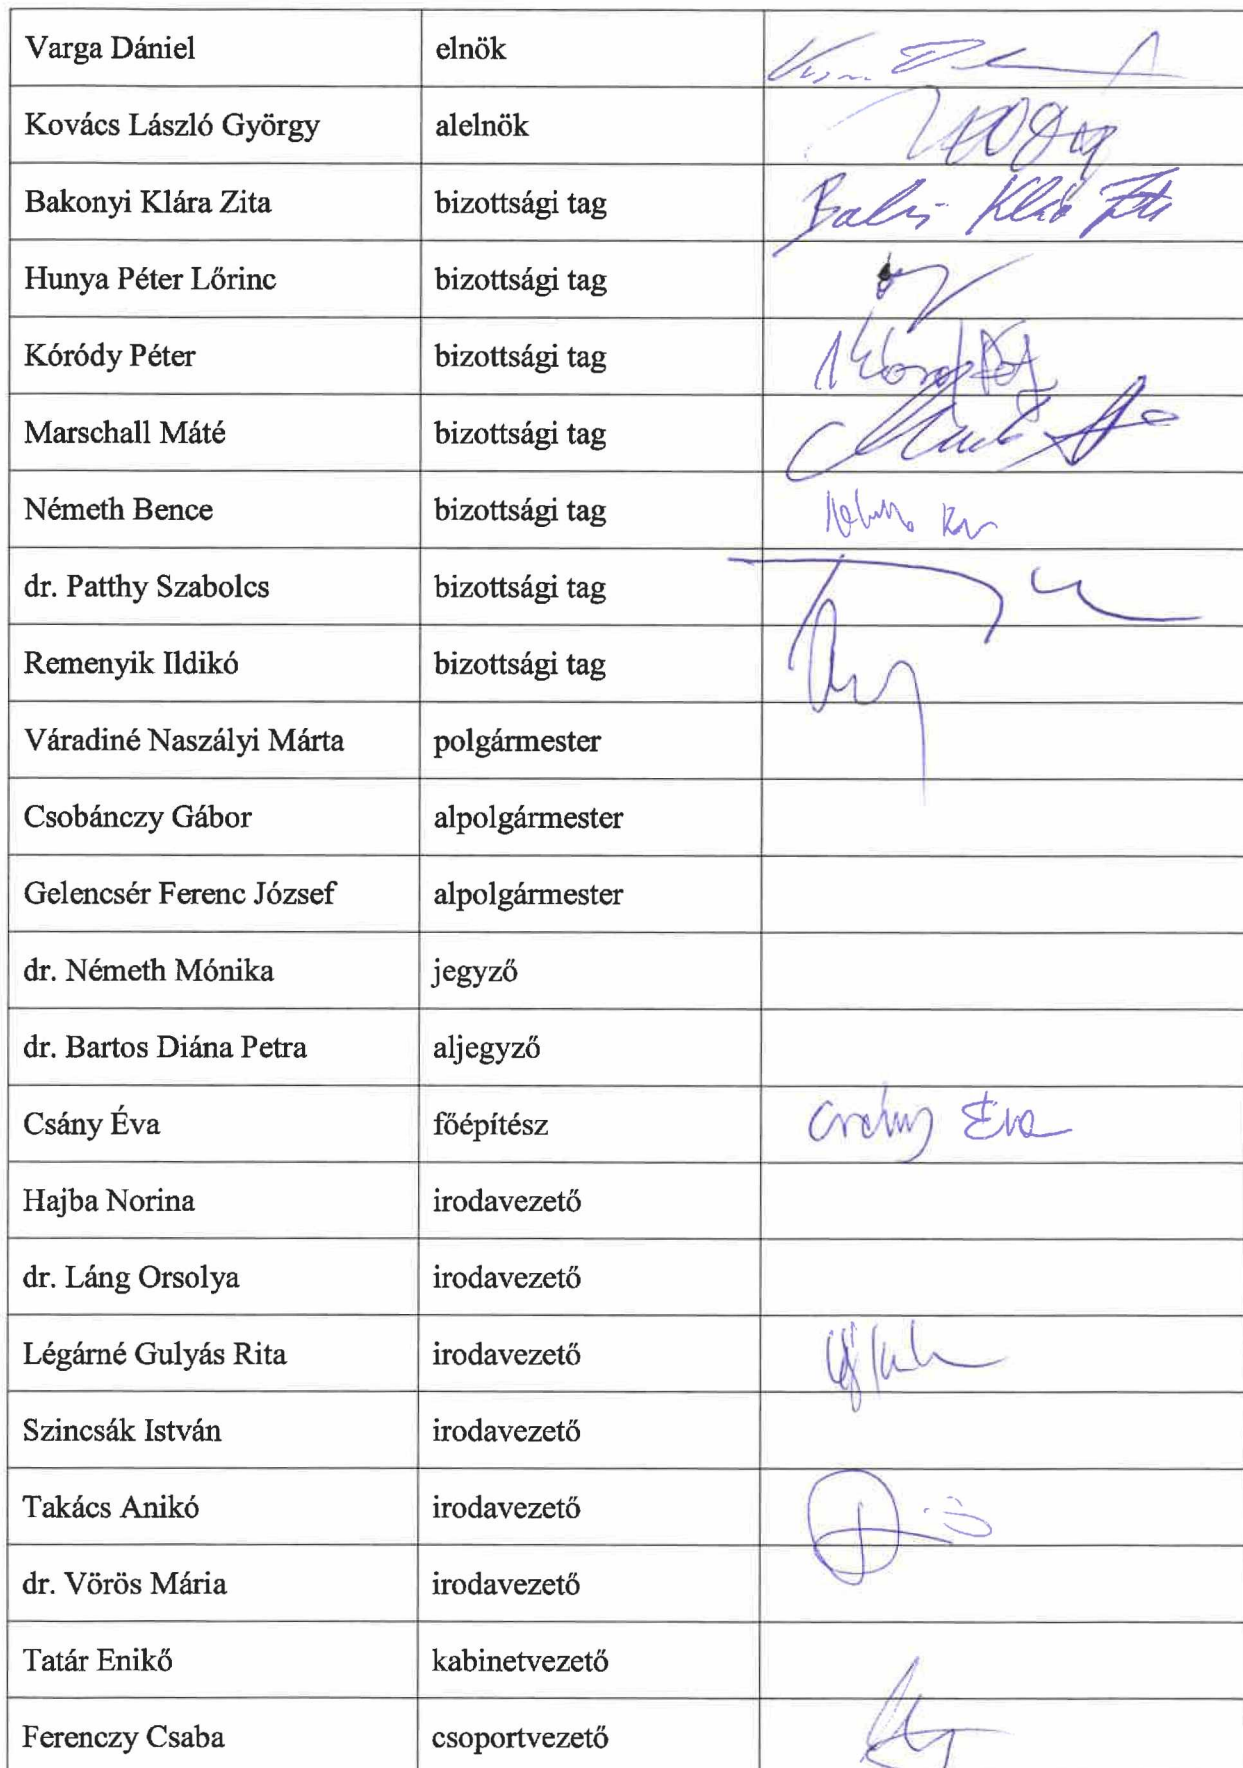 Varga Dániel elnök
Kovács László György alelnök
Bakonyi Klára Zita bizottsági tag
Hunya Péter Lőrinc bizottsági tag
Kóródy Péter bizottsági tag
Marschall Máté bizottsági tag
Németh Bence bizottsági tag
dr. Patthy Szabolcs bizottsági tag
Remenyik Ildikó bizottsági tag
Váradiné Naszályi Márta polgármester
Csobánczy Gábor alpolgármester
Gelencsér Ferenc József alpolgármester
dr. Németh Mónika jegyző
dr. Bartos Diána Petra aljegyző
Csány Éva főépítész Csány Éva
Hajba Norina irodavezető
dr. Láng Orsolya irodavezető
Légárné Gulyás Rita irodavezető
Szincsák István irodavezető
Takács Anikó irodavezető
dr. Vörös Mária irodavezető
Tatár Enikő kabinetvezető
Ferenczy Csaba csoportvezető